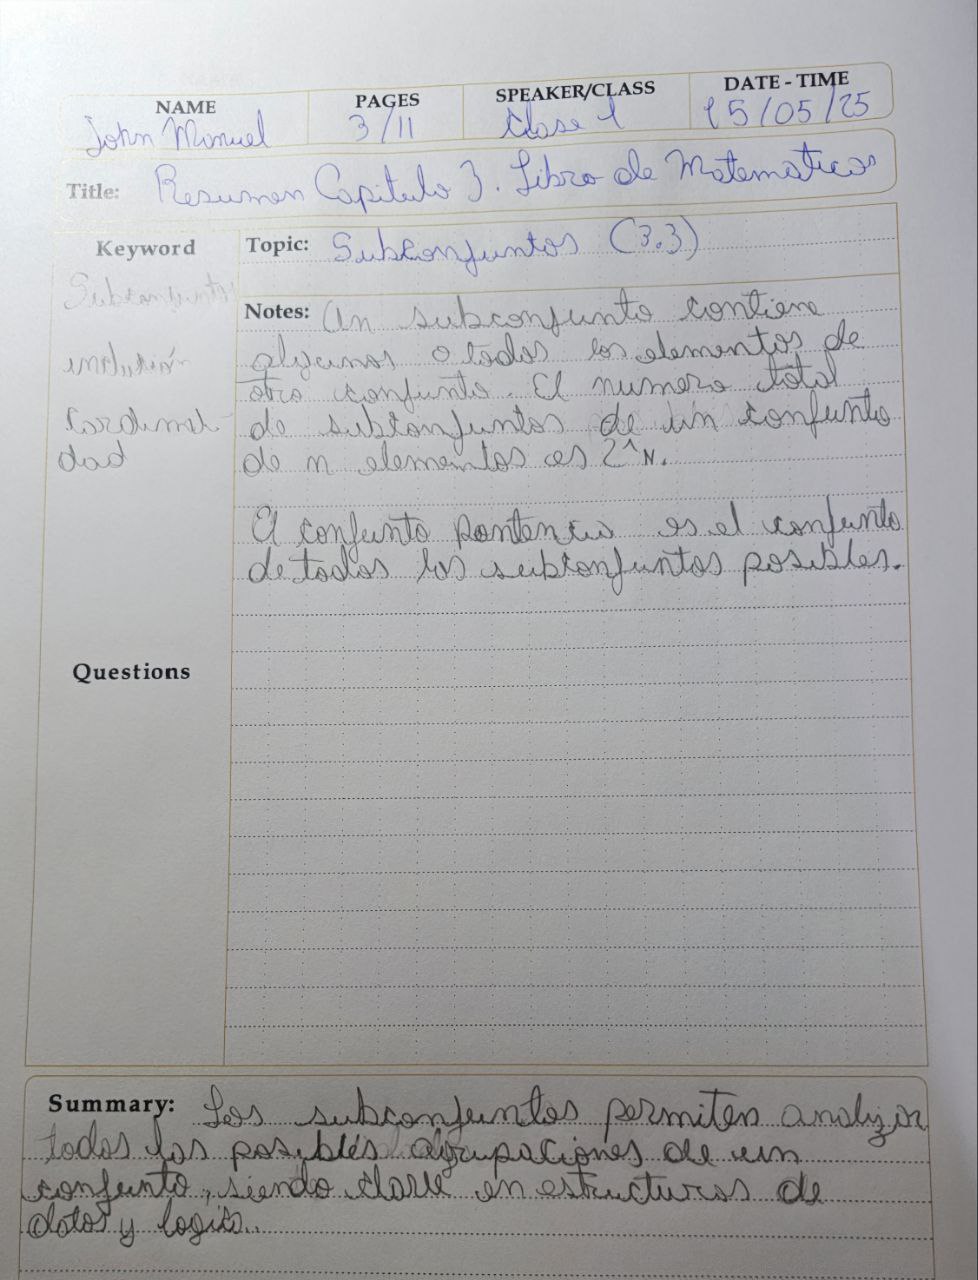 NAME PAGES SPEAKER/CLASS DATE - TIME
John Manuel 3/11 Clase 1 15/05/25
Title: Resumen Capitulo 3. Libro de Matematicas
Keyword
Topic: Subconjuntos (3.3)
Subconjuntos
inclusión
Cardinali-
dad
Notes: Un subconjunto contiene
algunos o todos los elementos de
otro conjunto. El numero total
de subconjuntos de un conjunto
de n elementos es 2^N.
El conjunto pontencia es el conjunto
de todos los subconjuntos posibles.
Questions
Summary: Los subconjuntos permiten analizar
todas las posibles agrupaciones de un
conjunto, siendo clave en estructuras de
datos y logica.